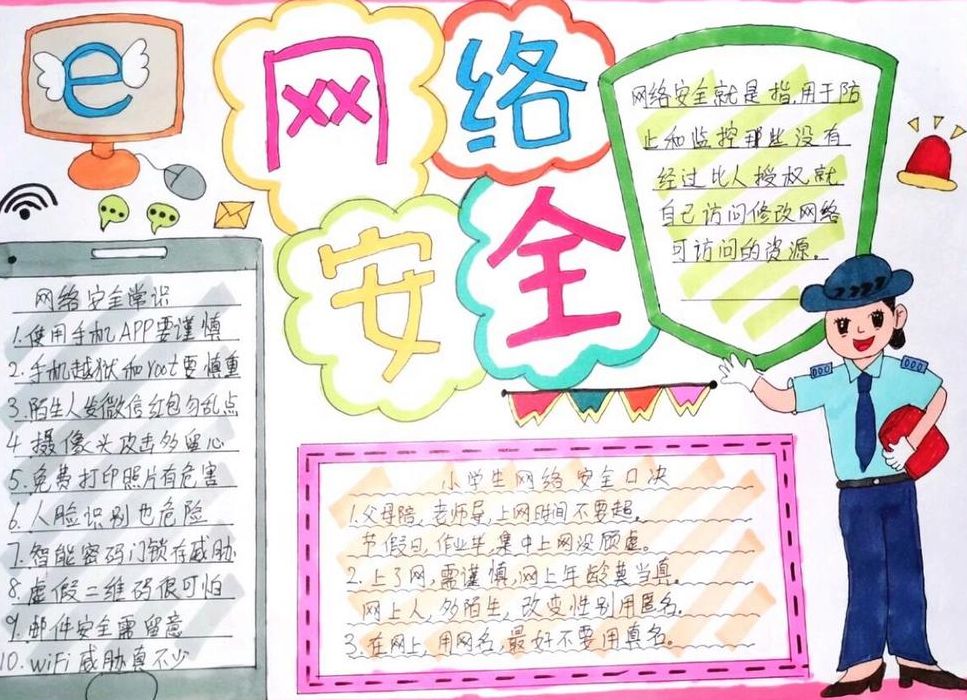 e
网络
安全
网络安全就是指,用于防
止和监控那些没有
经过比人授权就
自己访问修改网络
可访问的资源。
网络安全常识
1.使用手机APP要谨慎
2.手机越狱和root要慎重
3.陌生人发微信红包勿乱点
4.摄像头攻击多留心
5.免费打印照片有危害
6.人脸识别也危险
7.智能密码门锁存威胁
8.虚假二维码很可怕
9.邮件安全需留意
10.wiFi威胁真不少
小学生网络安全口决
1.父母陪,老师导,上网时间不要超。
节假日,作业毕,集中上网没顾虑。
2.上了网,需谨慎,网上年龄莫当真。
网上人,多陌生,改变性别用匿名。
3.在网上,用网名,最好不要用真名。